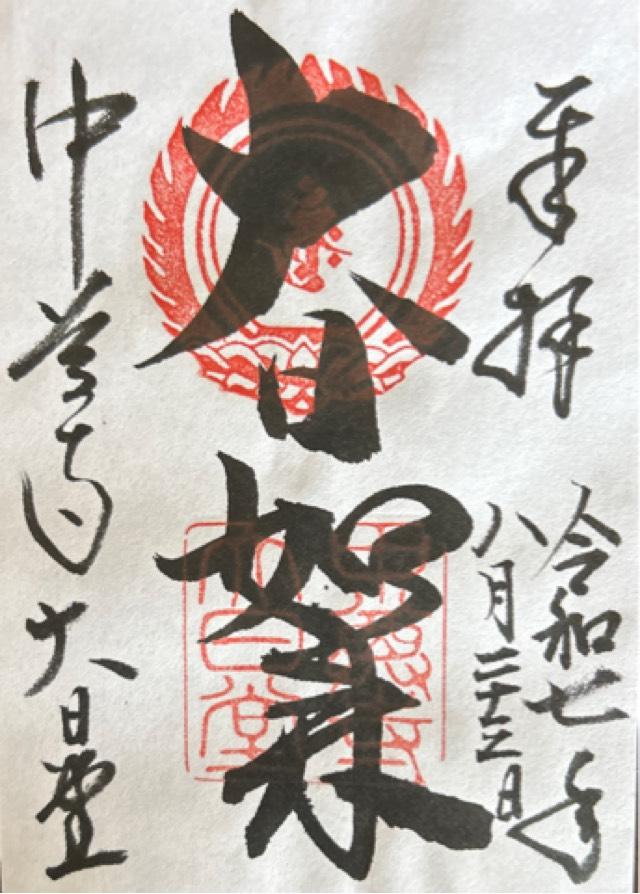 奉拝
令和七年
八月二十三日
大日如来
中尊寺大日堂